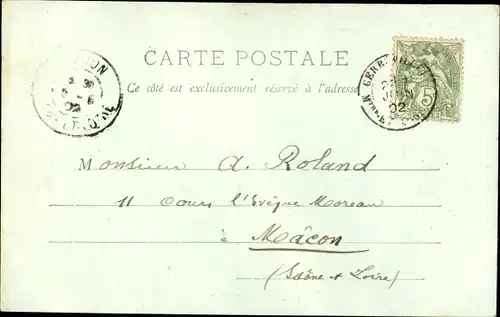 CARTE POSTALE
Ce côté est exclusivement réservé à l'adresse
Monsieur A. Roland
11 Cours l'Evêque Moreau
à Mâcon
(Saône & Loire)
02
5